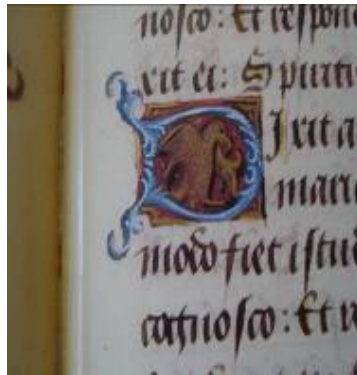 nosco: Et respon
xit ei: Spirit
Dixit a
mari
modo fiet istud
cognosco: Et re